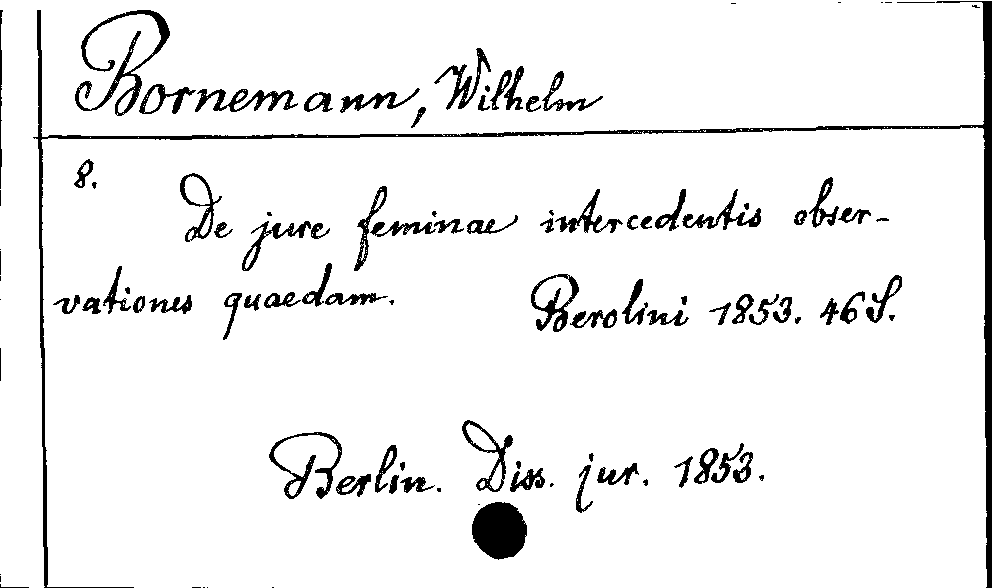 Bornemann, Wilhelm
8.
De jure feminae intercedentis obser-
vationes quaedam. Berolini 1853. 46 S.
Berlin. Diss. jur. 1853.